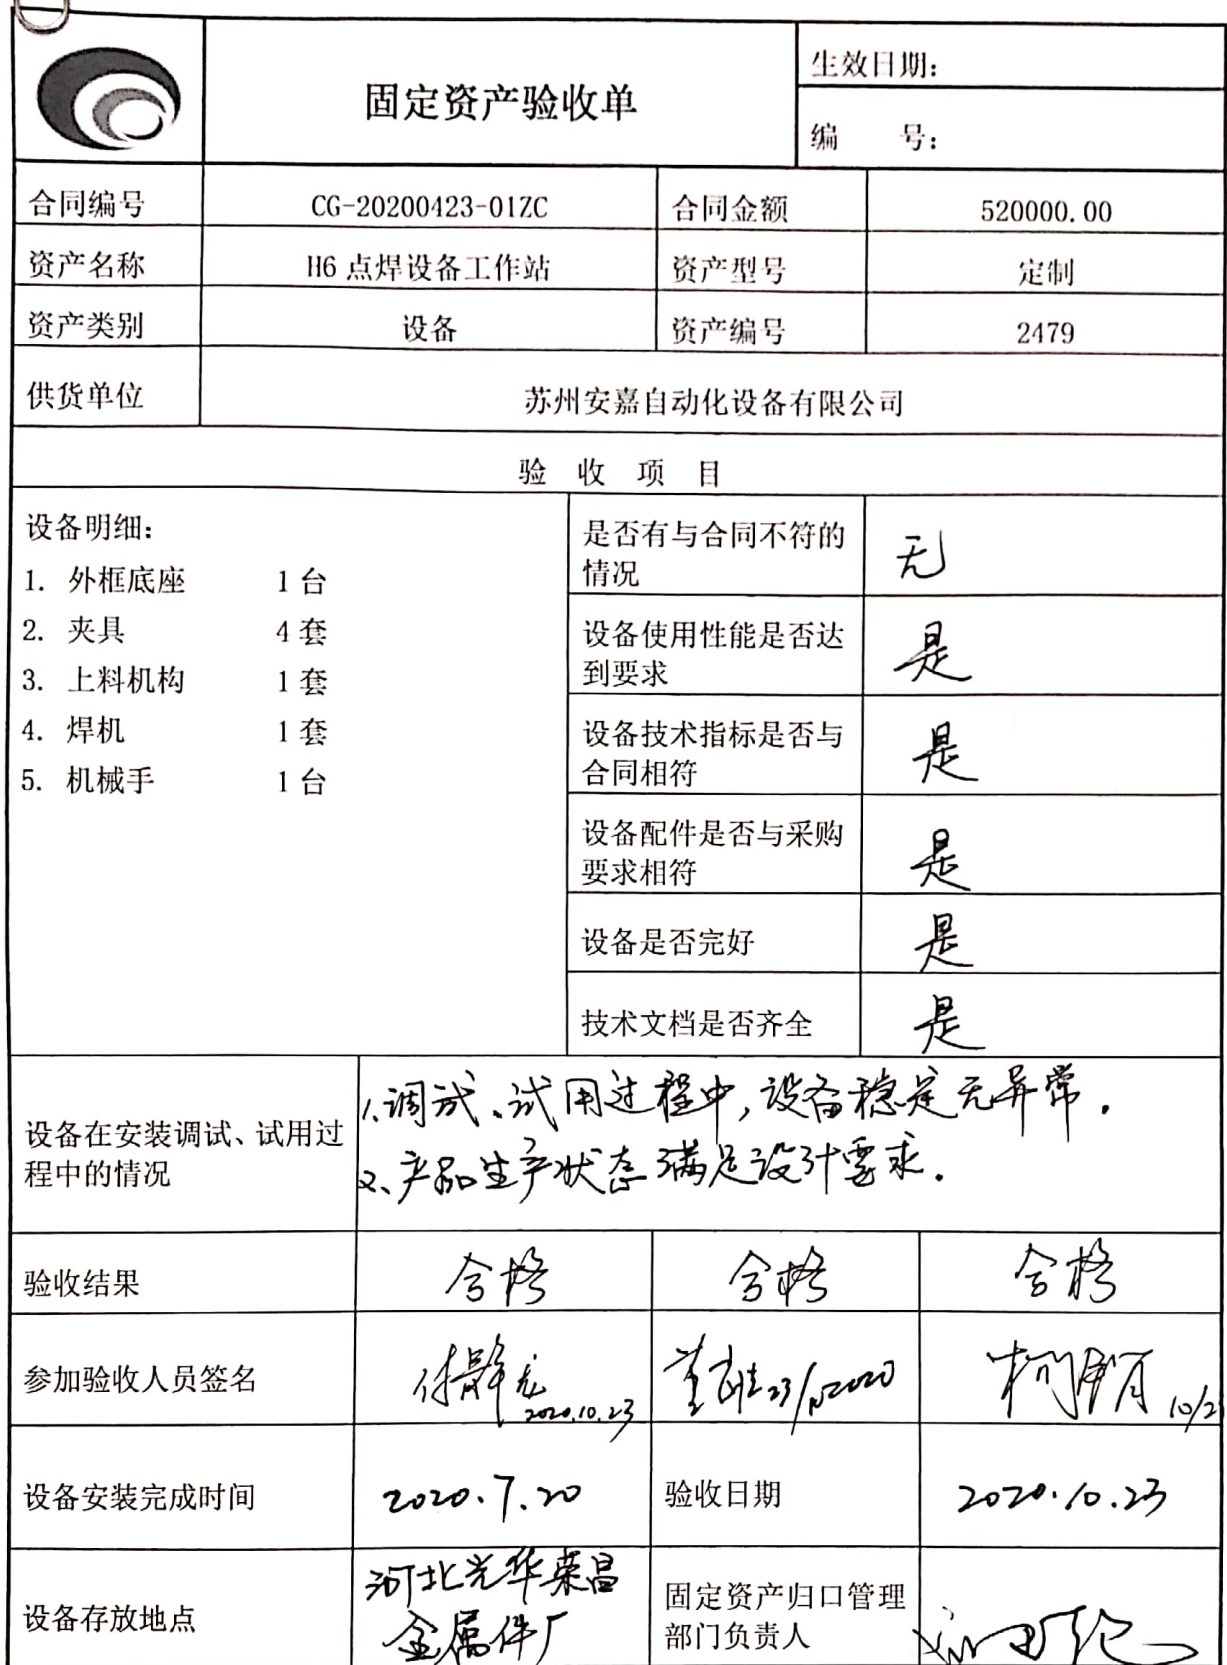 固定资产验收单
生效日期：
编 号：
合同编号 CG-20200423-01ZC 合同金额 520000.00
资产名称 H6 点焊设备工作站 资产型号 定制
资产类别 设备 资产编号 2479
供货单位 苏州安嘉自动化设备有限公司
验 收 项 目
设备明细：
1. 外框底座 1 台
2. 夹具 4 套
3. 上料机构 1 套
4. 焊机 1 套
5. 机械手 1 台
是否有与合同不符的
情况
无
设备使用性能是否达
到要求
是
设备技术指标是否与
合同相符
是
设备配件是否与采购
要求相符
是
设备是否完好 是
技术文档是否齐全 是
设备在安装调试、试用过
程中的情况
1、调试、试用过程中，设备稳定无异常．
2、产品生产状态满足设计要求．
验收结果 合格 合格 合格
参加验收人员签名
2020.10.23
23/10 2020
设备安装完成时间 2020.7.20 验收日期 2020.10.23
设备存放地点
河北光华荣昌
金属件厂
固定资产归口管理
部门负责人